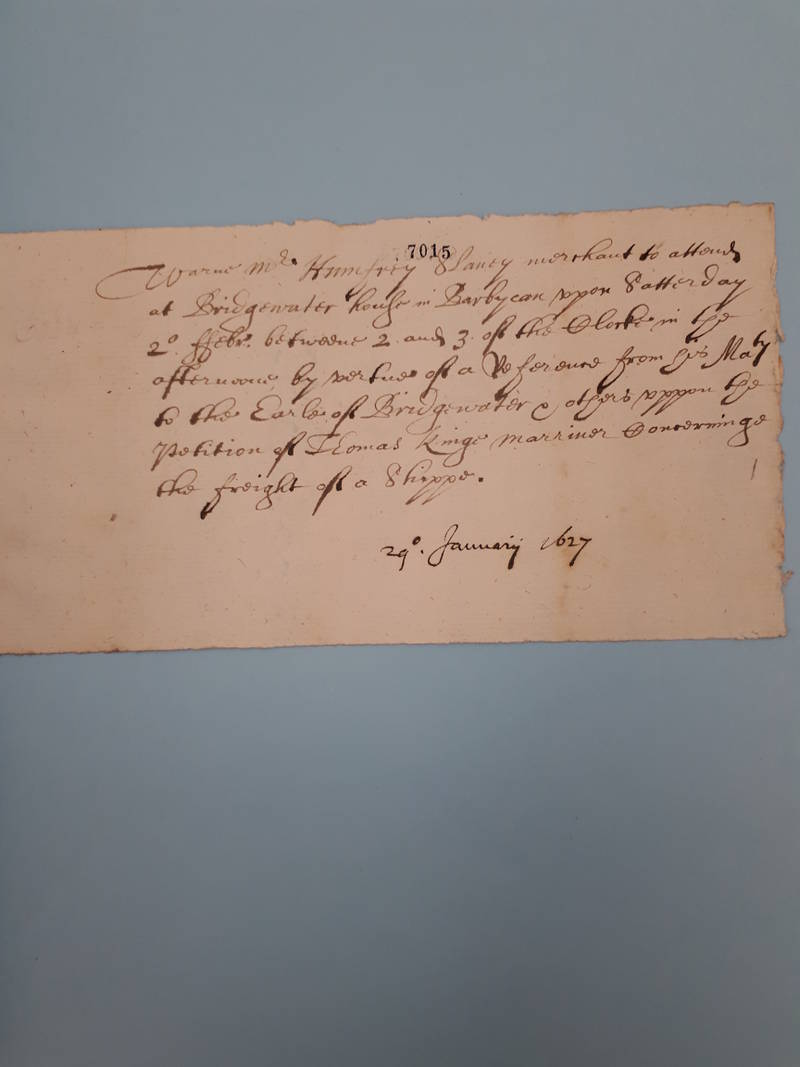 7015
Warne Mr. Humfrey Slaney merchant to attend
at Bridgewater house in Barbycan vppon Satterday
2o. ffebr. betweene 2 and 3 of the Clocke in the
afternoone by vertue of a Reference from his Maty
to the Earle of Bridgewater & others vppon the
Petition of Thomas Kinge marriner Concerninge
the freight of a Shippe.
29o. January 1627